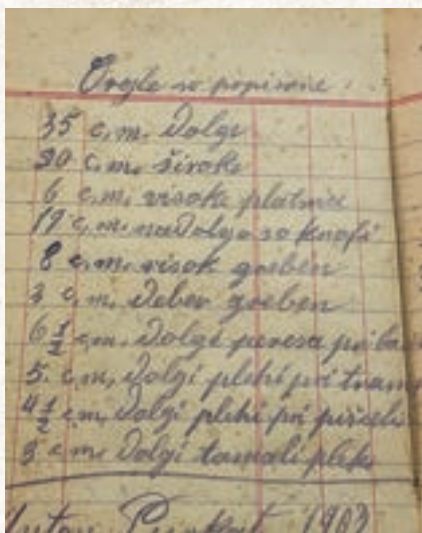 Orgle so popisane
35 c.m. dolge
20 c.m. široke
6 c.m. visoke platnice
19 c.m. na dolgo so knofi
8 c.m. visok greben
3 c.m. debev greben
6 1/2 c.m. dolgi peresa pri
5. c.m. dolgi plehi pri
4 1/2 c.m. dolgi plehi pri
3 c.m. dolgi tamali plehi
Anton 1903